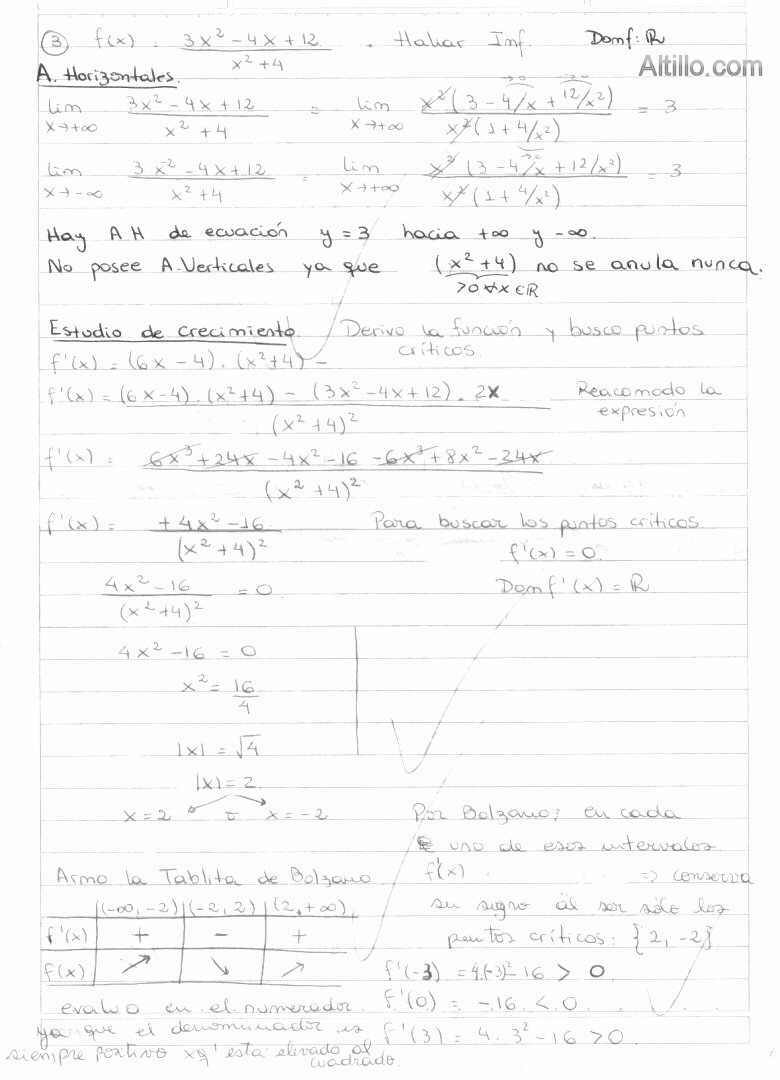 ③ f(x) = (3x² - 4x + 12)/(x² + 4) . Hallar Inf. Dom f: ℝ
Altillo.com
A. Horizontales.
lim x→+∞ (3x² - 4x + 12)/(x² + 4) = lim x→+∞ x²(3 - 4/x + 12/x²)/x²(1 + 4/x²) = 3
lim x→-∞ (3x² - 4x + 12)/(x² + 4) = lim x→+∞ x²(3 - 4/x + 12/x²)/x²(1 + 4/x²) = 3
Hay A H de ecuación y = 3 hacia +∞ y -∞.
No posee A. Verticales ya que (x² + 4) no se anula nunca.
>0 ∀x ∈ ℝ
Estudio de crecimiento. Derivo la función y busco puntos críticos
f'(x) = (6x - 4) . (x² + 4) -
f'(x) = ((6x - 4) . (x² + 4) - (3x² - 4x + 12) . 2x)/(x² + 4)² Reacomodo la expresión
f'(x) = (6x³ + 24x - 4x² - 16 - 6x³ + 8x² - 24x)/(x² + 4)²
f'(x) = (+4x² - 16)/(x² + 4)² Para buscar los puntos críticos
f'(x) = 0
(4x² - 16)/(x² + 4)² = 0 Dom f'(x) = ℝ
4x² - 16 = 0
x² = 16/4
|x| = √4
|x| = 2
x = 2 o x = -2
Por Bolzano, en cada
uno de esos intervalos
f'(x) ⇒ conserva
su signo al ser sólo los
puntos críticos: {2, -2}
Armo la Tablita de Bolzano
(-∞, -2) (-2, 2) (2, +∞)
f'(x) + - +
f(x) ↗ ↘ ↗
f'(-3) = 4.(-3)² - 16 > 0
f'(0) = -16 < 0
f'(3) = 4. 3² - 16 > 0
evaluo en el numerador
ya que el denominador es
siempre positivo xq' está elevado al
cuadrado.